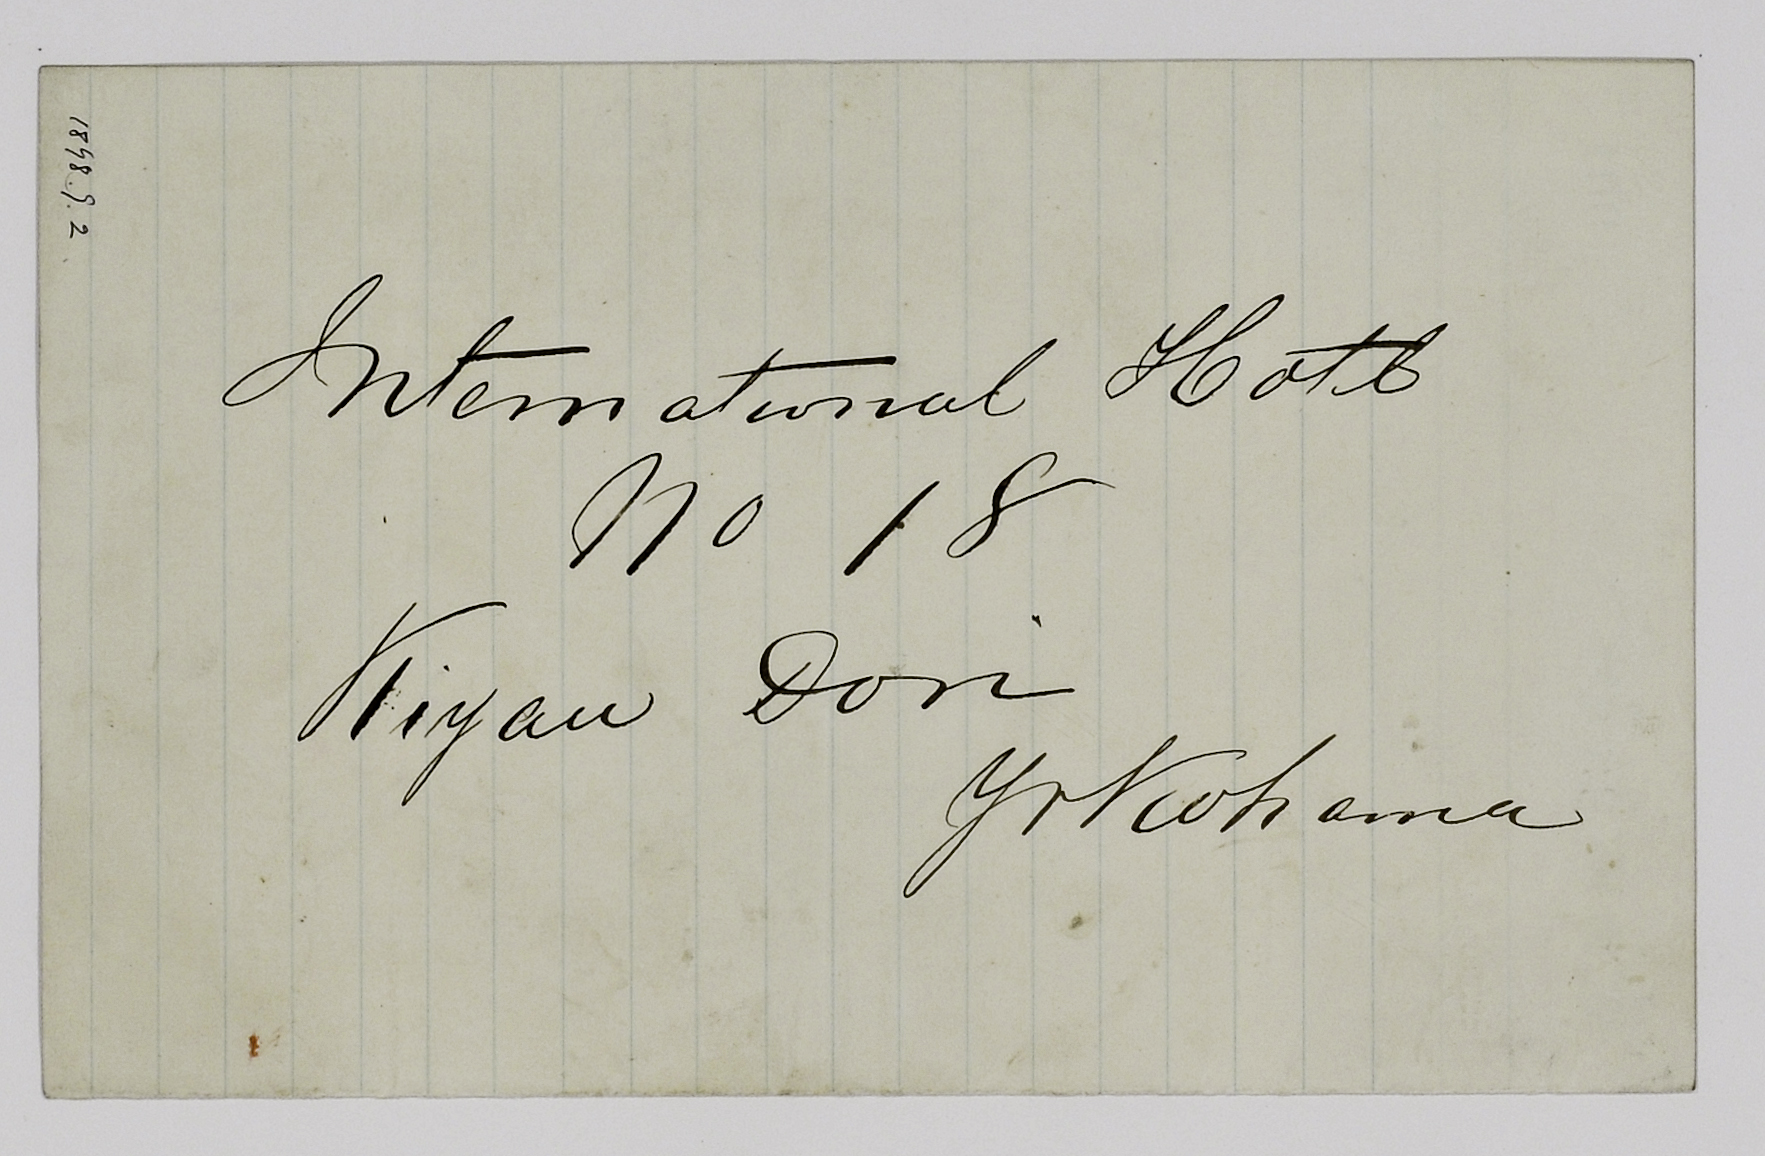 1898.9.2
International Hotel
No 18
Kigau Dori
Yokohama